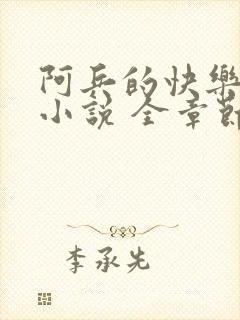 阿兵的快樂
小說 全章節
李承先